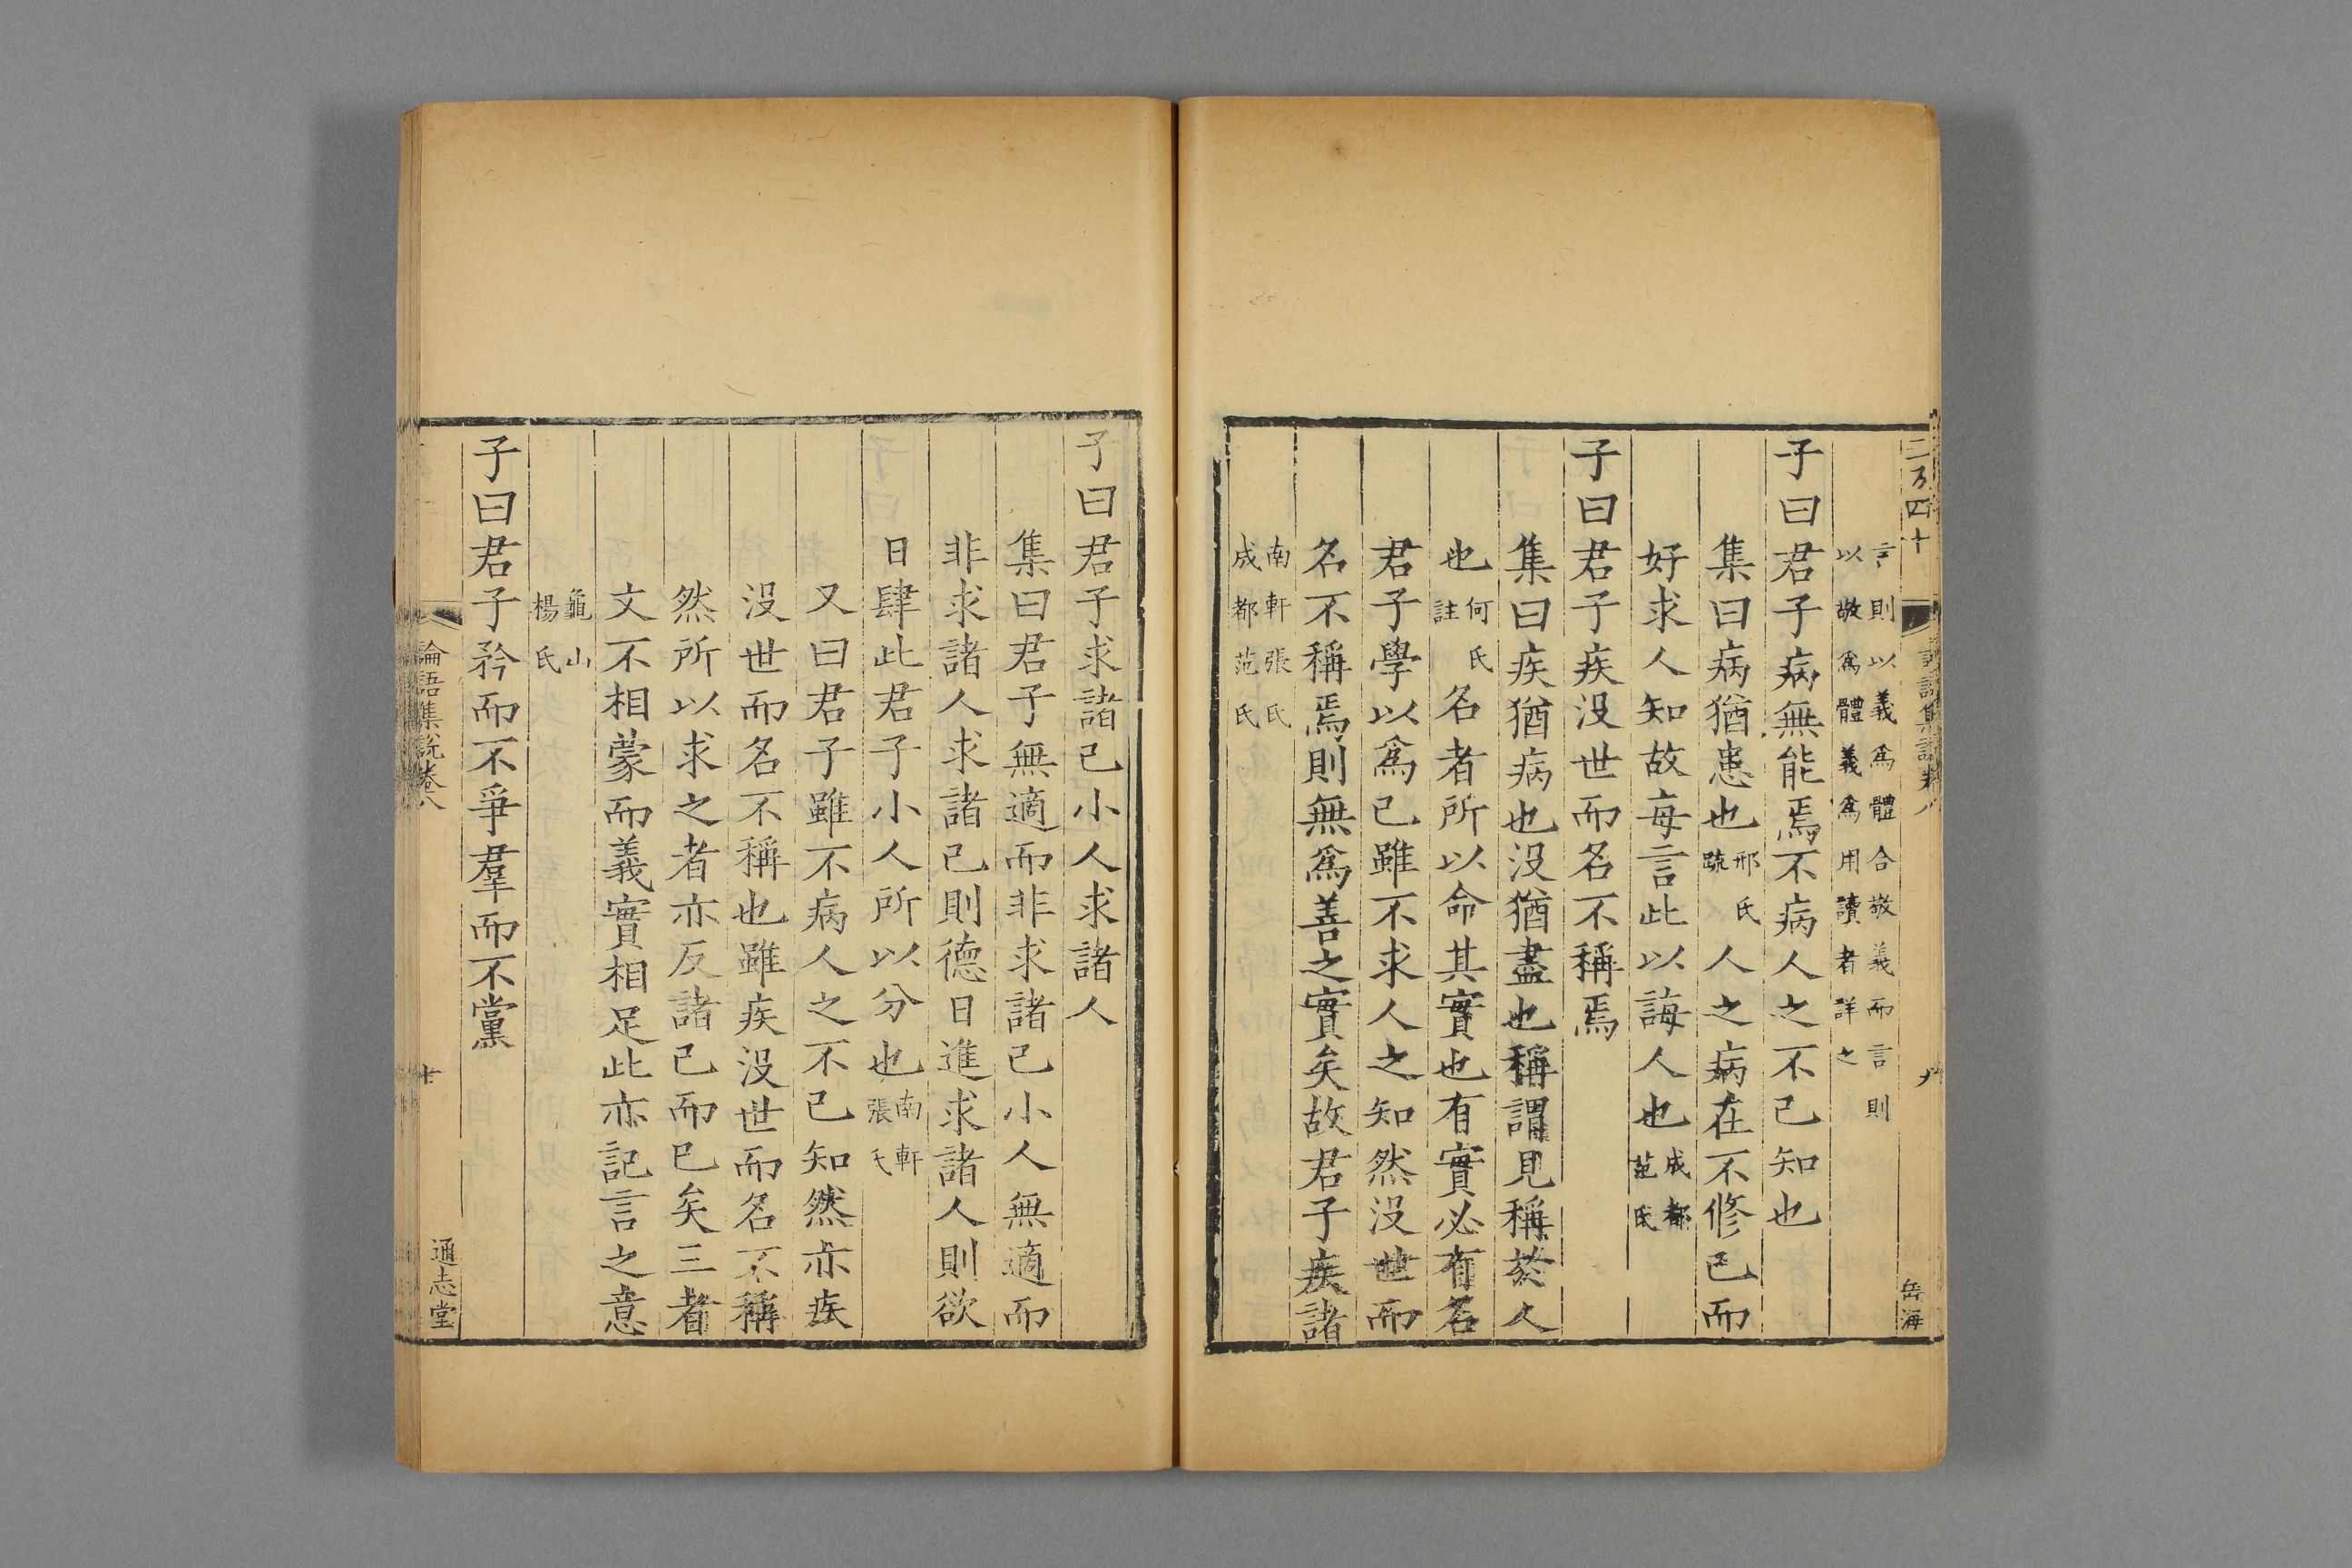 二百四十
岳海
言則以義爲體合敬義而言則
以敬爲體義爲用讀者詳之
子曰君子病無能焉不病人之不己知也
集曰病猶患也邢氏疏人之病在不修己而
好求人知故每言此以誨人也成都范氏
子曰君子疾沒世而名不稱焉
集曰疾猶病也沒猶盡也稱謂見稱於人
也何氏註名者所以命其實也有實必有名
君子學以爲己雖不求人之知然沒世而
名不稱焉則無爲善之實矣故君子疾諸
南軒張氏
成都范氏
子曰君子求諸己小人求諸人
集曰君子無適而非求諸己小人無適而
非求諸人求諸己則德日進求諸人則欲
日肆此君子小人所以分也南軒張氏
又曰君子雖不病人之不己知然亦疾
沒世而名不稱也雖疾沒世而名不稱
然所以求之者亦反諸己而已矣三者
文不相蒙而義實相足此亦記言之意
龜山
楊氏
子曰君子矜而不爭羣而不黨
論語集說卷八
十
通志堂